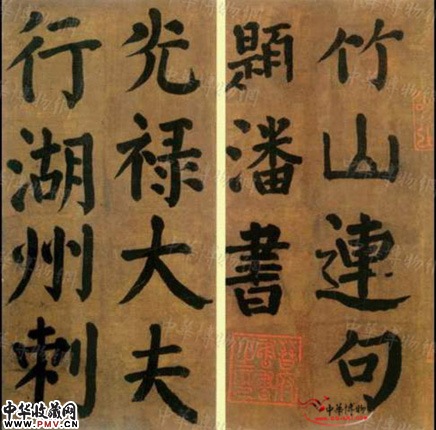 竹山連句
題潘書
光禄大夫
行湖州刺
中华收藏网
www.PMV.CN
中華博物